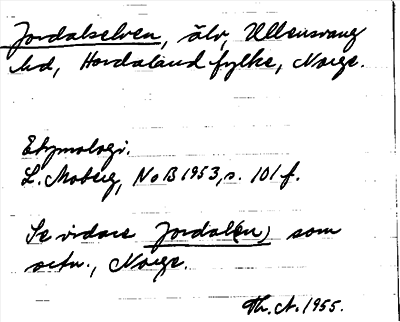 Jordalselven, älv, Ullensvang
hd, Hordaland fylke, Norge.
Etymologi.
L. Moberg, NoB 1953, s. 101 f.
Se vidare Jordal(en) som
ortn., Norge.
Th. A. 1955.